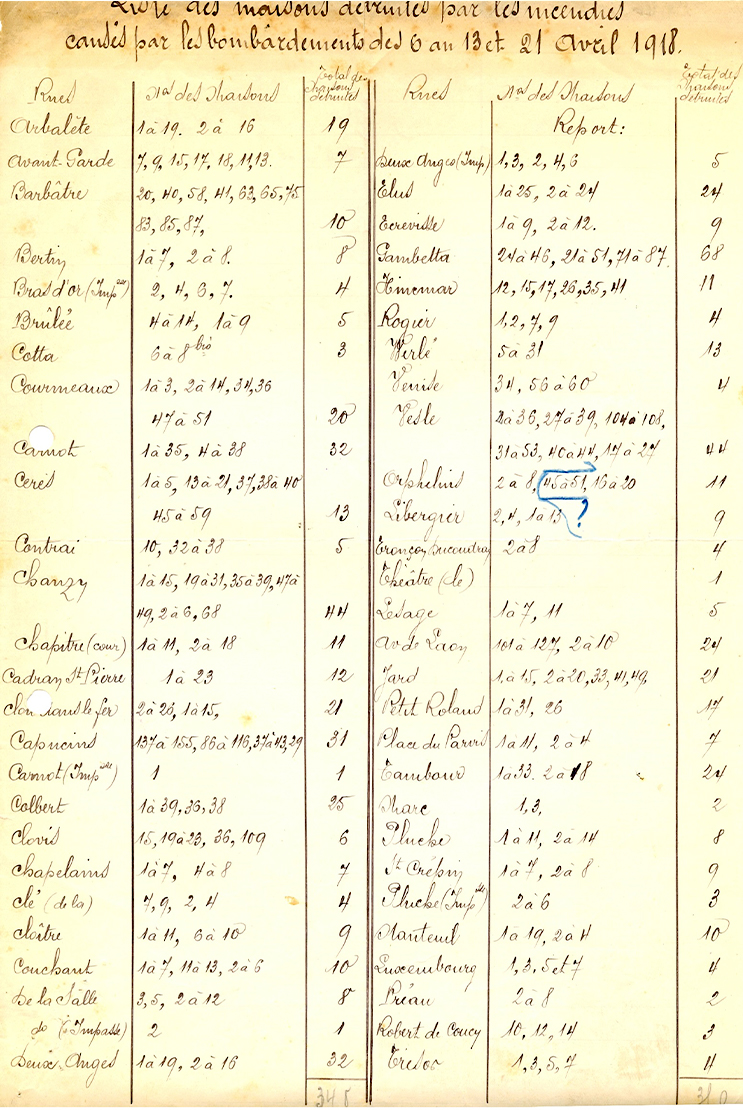 Liste des maisons détruites par les incendies
causés par les bombârdements des 6 au 13 et 21 Avril 1918.
Rues Nos des Maisons Total des maisons détruites
Arbalète 1 à 19. 2 à 16 19
Avant-Garde 7, 9, 15, 17, 18, 11, 13. 7
Barbâtre 20, 40, 58, 41, 63, 65, 75
83, 85, 87, 10
Bertin 1 à 7, 2 à 8. 8
Bras d'or (Impsse) 2, 4, 6, 7. 4
Brûlée 4 à 14, 1 à 9 5
Cotta 6 à 8 bis 3
Courmeaux 1 à 3, 2 à 14, 34, 36
47 à 51 20
Carnot 1 à 35, 4 à 38 32
Cerès 1 à 5, 13 à 21, 37, 38 à 40
45 à 59 13
Contrai 10, 32 à 38 5
Chanzy 1 à 15, 19 à 31, 35 à 39, 47 à
49, 2 à 6, 68 44
Chapitre (cour) 1 à 11, 2 à 18 11
Cadran St Pierre 1 à 23 12
dans le fer 2 à 26, 1 à 15, 21
Capucins 137 à 155, 86 à 116, 37 à 43, 29 31
Carnot (Impsse) 1 1
Colbert 1 à 39, 36, 38 25
Clovis 15, 19 à 23, 36, 109 6
Chapelains 1 à 7, 4 à 8 7
Clé (de la) 7, 9, 2, 4 4
Cloître 1 à 11, 6 à 10 9
Couchant 1 à 7, 11 à 13, 2 à 6 10
De la Salle 3, 5, 2 à 12 8
do (Impasse) 2 1
Deux Anges 1 à 19, 2 à 16 32
348
Rues Nos des Maisons Total des maisons détruites
Report:
Deux Anges (Imp) 1, 3, 2, 4, 6 5
Elus 1 à 25, 2 à 24 24
Ecrevisse 1 à 9, 2 à 12. 9
Gambetta 24 à 46, 21 à 51, 71 à 87. 68
Hincmar 12, 15, 17, 26, 35, 41 11
Rogier 1, 2, 7, 9 4
Werlé 5 à 31 13
Venise 34, 56 à 60 4
Vesle 2 à 36, 27 à 39, 104 à 108,
31 à 53, 40 à 44, 17 à 27 44
Orphelins 2 à 8, 45 à 51, 16 à 20 11
Libergier 2, 4, 1 à 13 ? 9
Tronçon Ducoudray 2 à 8 4
Théâtre (le) 1
Lesage 1 à 7, 11 5
Av de Laon 101 à 127, 2 à 10 24
Jard 1 à 15, 2 à 20, 33, 41, 49, 21
Petit Roland 1 à 31, 26 17
Place du Parvis 1 à 11, 2 à 4 7
Tambour 1 à 33. 2 à 18 24
Marc 1, 3, 2
Pluche 1 à 11, 2 à 14 8
St Crépin 1 à 7, 2 à 8 9
Pluche (Impsse) 2 à 6 3
Nanteuil 1 à 19, 2 à 4 10
Luxembourg 1, 3, 5 et 7 4
Préau 2 à 8 2
Robert de Coucy 10, 12, 14 3
Trésor 1, 3, 5, 7 4